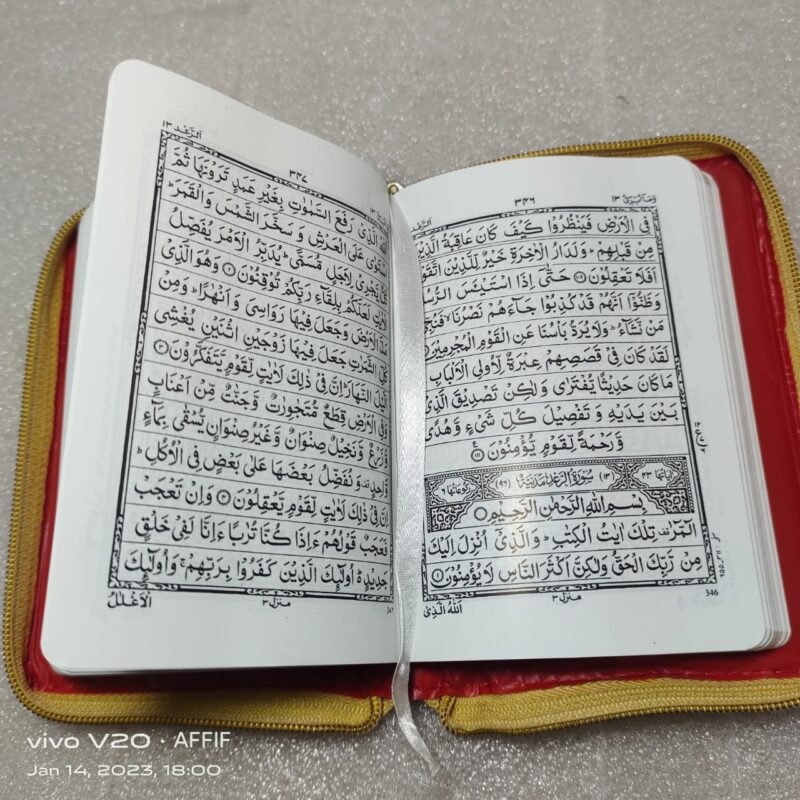 وَمَآ اُبَرِّئُ ١٣
٣٤٦
فِی الْاَرْضِ فَیَنْظُرُوْا كَیْفَ كَانَ عَاقِبَةُ الَّذِیْنَ
مِنْ قَبْلِهِمْ ؕ وَلَدَارُ الْاٰخِرَةِ خَیْرٌ لِّلَّذِیْنَ اتَّقَوْا
اَفَلَا تَعْقِلُوْنَ ۝ حَتّٰۤی اِذَا اسْتَیْـَٔسَ الرُّسُلُ
وَظَنُّوْۤا اَنَّهُمْ قَدْ كُذِبُوْا جَآءَهُمْ نَصْرُنَا ۙ فَنُجِّیَ
مَنْ نَّشَآءُ ؕ وَلَا یُرَدُّ بَاْسُنَا عَنِ الْقَوْمِ الْمُجْرِمِیْنَ
لَقَدْ كَانَ فِیْ قَصَصِهِمْ عِبْرَةٌ لِّاُولِی الْاَلْبَابِ
مَا كَانَ حَدِیْثًا یُّفْتَرٰی وَلٰكِنْ تَصْدِیْقَ الَّذِیْ
بَیْنَ یَدَیْهِ وَ تَفْصِیْلَ كُلِّ شَیْءٍ وَّ هُدًی
وَّ رَحْمَةً لِّقَوْمٍ یُّؤْمِنُوْنَ ۝١١١
اٰیَاتُهَا ٤٣ (١٣) سُوْرَةُ الرَّعْدِ مَدَنِیَّةٌ (٩٦) رُكُوْعَاتُهَا ٦
بِسْمِ اللّٰهِ الرَّحْمٰنِ الرَّحِیْمِ
الٓمّٓرٰ ۫ تِلْكَ اٰیٰتُ الْكِتٰبِ ؕ وَالَّذِیْۤ اُنْزِلَ اِلَیْكَ
مِنْ رَّبِّكَ الْحَقُّ وَلٰكِنَّ اَكْثَرَ النَّاسِ لَا یُؤْمِنُوْنَ ۝١
منزل ٣
اَللّٰهُ الَّذِیْ
346
اَلرَّعْد ١٣
٣٤٧
اَللّٰهُ الَّذِیْ رَفَعَ السَّمٰوٰتِ بِغَیْرِ عَمَدٍ تَرَوْنَهَا ثُمَّ
اسْتَوٰی عَلَی الْعَرْشِ وَ سَخَّرَ الشَّمْسَ وَالْقَمَرَ ؕ
كُلٌّ یَّجْرِیْ لِاَجَلٍ مُّسَمًّی ؕ یُدَبِّرُ الْاَمْرَ یُفَصِّلُ
الْاٰیٰتِ لَعَلَّكُمْ بِلِقَآءِ رَبِّكُمْ تُوْقِنُوْنَ ۝٢ وَهُوَ الَّذِیْ
مَدَّ الْاَرْضَ وَجَعَلَ فِیْهَا رَوَاسِیَ وَ اَنْهٰرًا ؕ وَمِنْ
كُلِّ الثَّمَرٰتِ جَعَلَ فِیْهَا زَوْجَیْنِ اثْنَیْنِ یُغْشِی
الَّیْلَ النَّهَارَ ؕ اِنَّ فِیْ ذٰلِكَ لَاٰیٰتٍ لِّقَوْمٍ یَّتَفَكَّرُوْنَ ۝٣
وَفِی الْاَرْضِ قِطَعٌ مُّتَجٰوِرٰتٌ وَّ جَنّٰتٌ مِّنْ اَعْنَابٍ
وَّ زَرْعٌ وَّ نَخِیْلٌ صِنْوَانٌ وَّ غَیْرُ صِنْوَانٍ یُّسْقٰی بِمَآءٍ
وَّاحِدٍ ۟ وَ نُفَضِّلُ بَعْضَهَا عَلٰی بَعْضٍ فِی الْاُكُلِ ؕ
اِنَّ فِیْ ذٰلِكَ لَاٰیٰتٍ لِّقَوْمٍ یَّعْقِلُوْنَ ۝٤ وَاِنْ تَعْجَبْ
فَعَجَبٌ قَوْلُهُمْ ءَاِذَا كُنَّا تُرٰبًا ءَاِنَّا لَفِیْ خَلْقٍ
جَدِیْدٍ ۬ؕ اُولٰٓئِكَ الَّذِیْنَ كَفَرُوْا بِرَبِّهِمْ ۚ وَاُولٰٓئِكَ
منزل ٣
الْاَغْلٰلُ
347
vivo V20 · AFFIF
Jan 14, 2023, 18:00